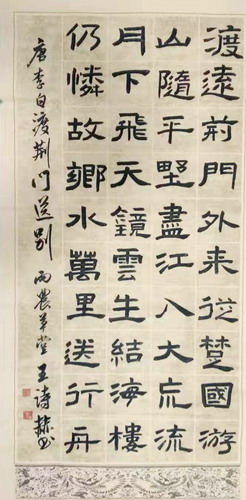 渡遠荊門外来從楚國游
山隨平野盡江入大荒流
月下飛天鏡雲生結海樓
仍憐故鄉水萬里送行舟
唐李白渡荆门送别 雨農草堂王诗赫书